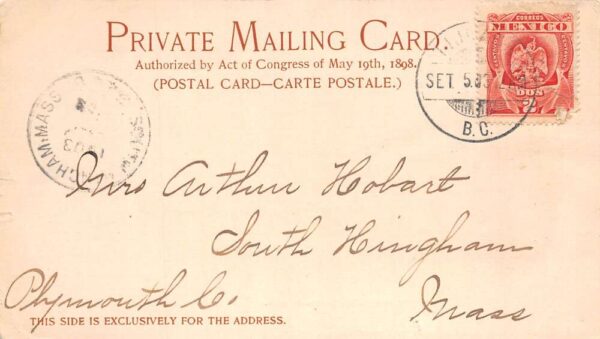 PRIVATE MAILING CARD
Authorized by Act of Congress of May 19th, 1898.
(POSTAL CARD—CARTE POSTALE.)
CORREOS
MEXICO
DOS
2
SET 5.03
B.C.
HAM. MASS
Mrs Arthur Hobart
South Hingham
Plymouth Co.
Mass
THIS SIDE IS EXCLUSIVELY FOR THE ADDRESS.